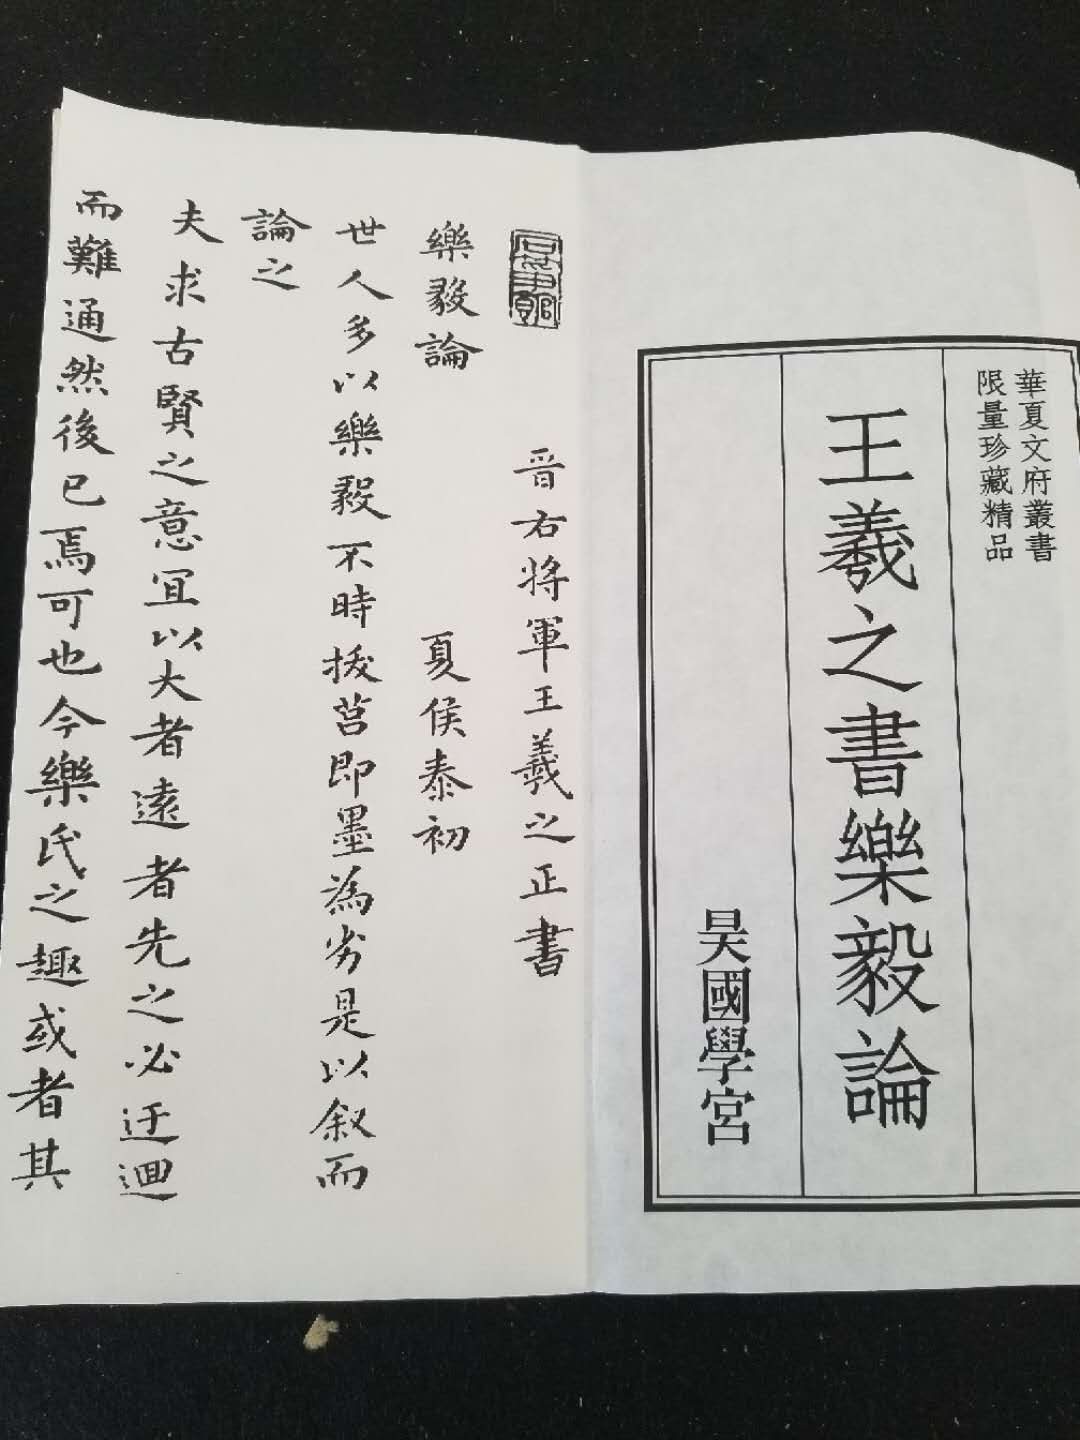 華夏文府叢書
限量珍藏精品
王羲之書樂毅論
昊國學宮
晉右將軍王羲之正書
樂毅論 夏侯泰初
世人多以樂毅不時拔莒即墨為劣是以叙而
論之
夫求古賢之意宜以大者遠者先之必迂迴
而難通然後已焉可也今樂氏之趣或者其